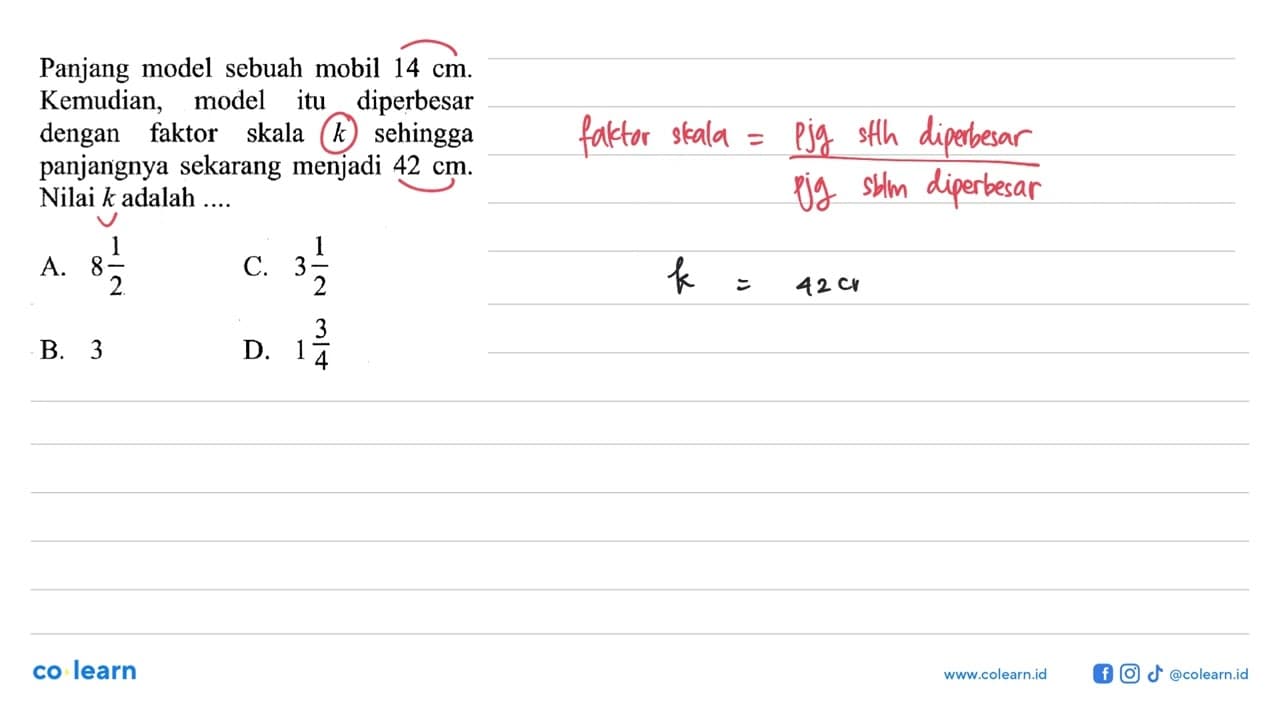 Panjang model sebuah mobil 14 cm.
Kemudian, model itu diperbesar
dengan faktor skala k sehingga
panjangnya sekarang menjadi 42 cm.
Nilai k adalah ....
A. 8 1/2 C. 3 1/2
B. 3 D. 1 3/4
faktor skala = pjg stlh diperbesar
pjg sblm diperbesar
k = 42 cm
co learn
www.colearn.id @colearn.id